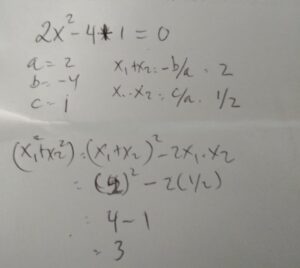 2x² - 4x + 1 = 0
a = 2   x₁ + x₂ = -b/a = 2
b = -4
c = 1   x₁ . x₂ = c/a . 1/2
(x₁² + x₂²) = (x₁ + x₂)² - 2x₁ . x₂
= (2)² - 2(1/2)
= 4 - 1
= 3